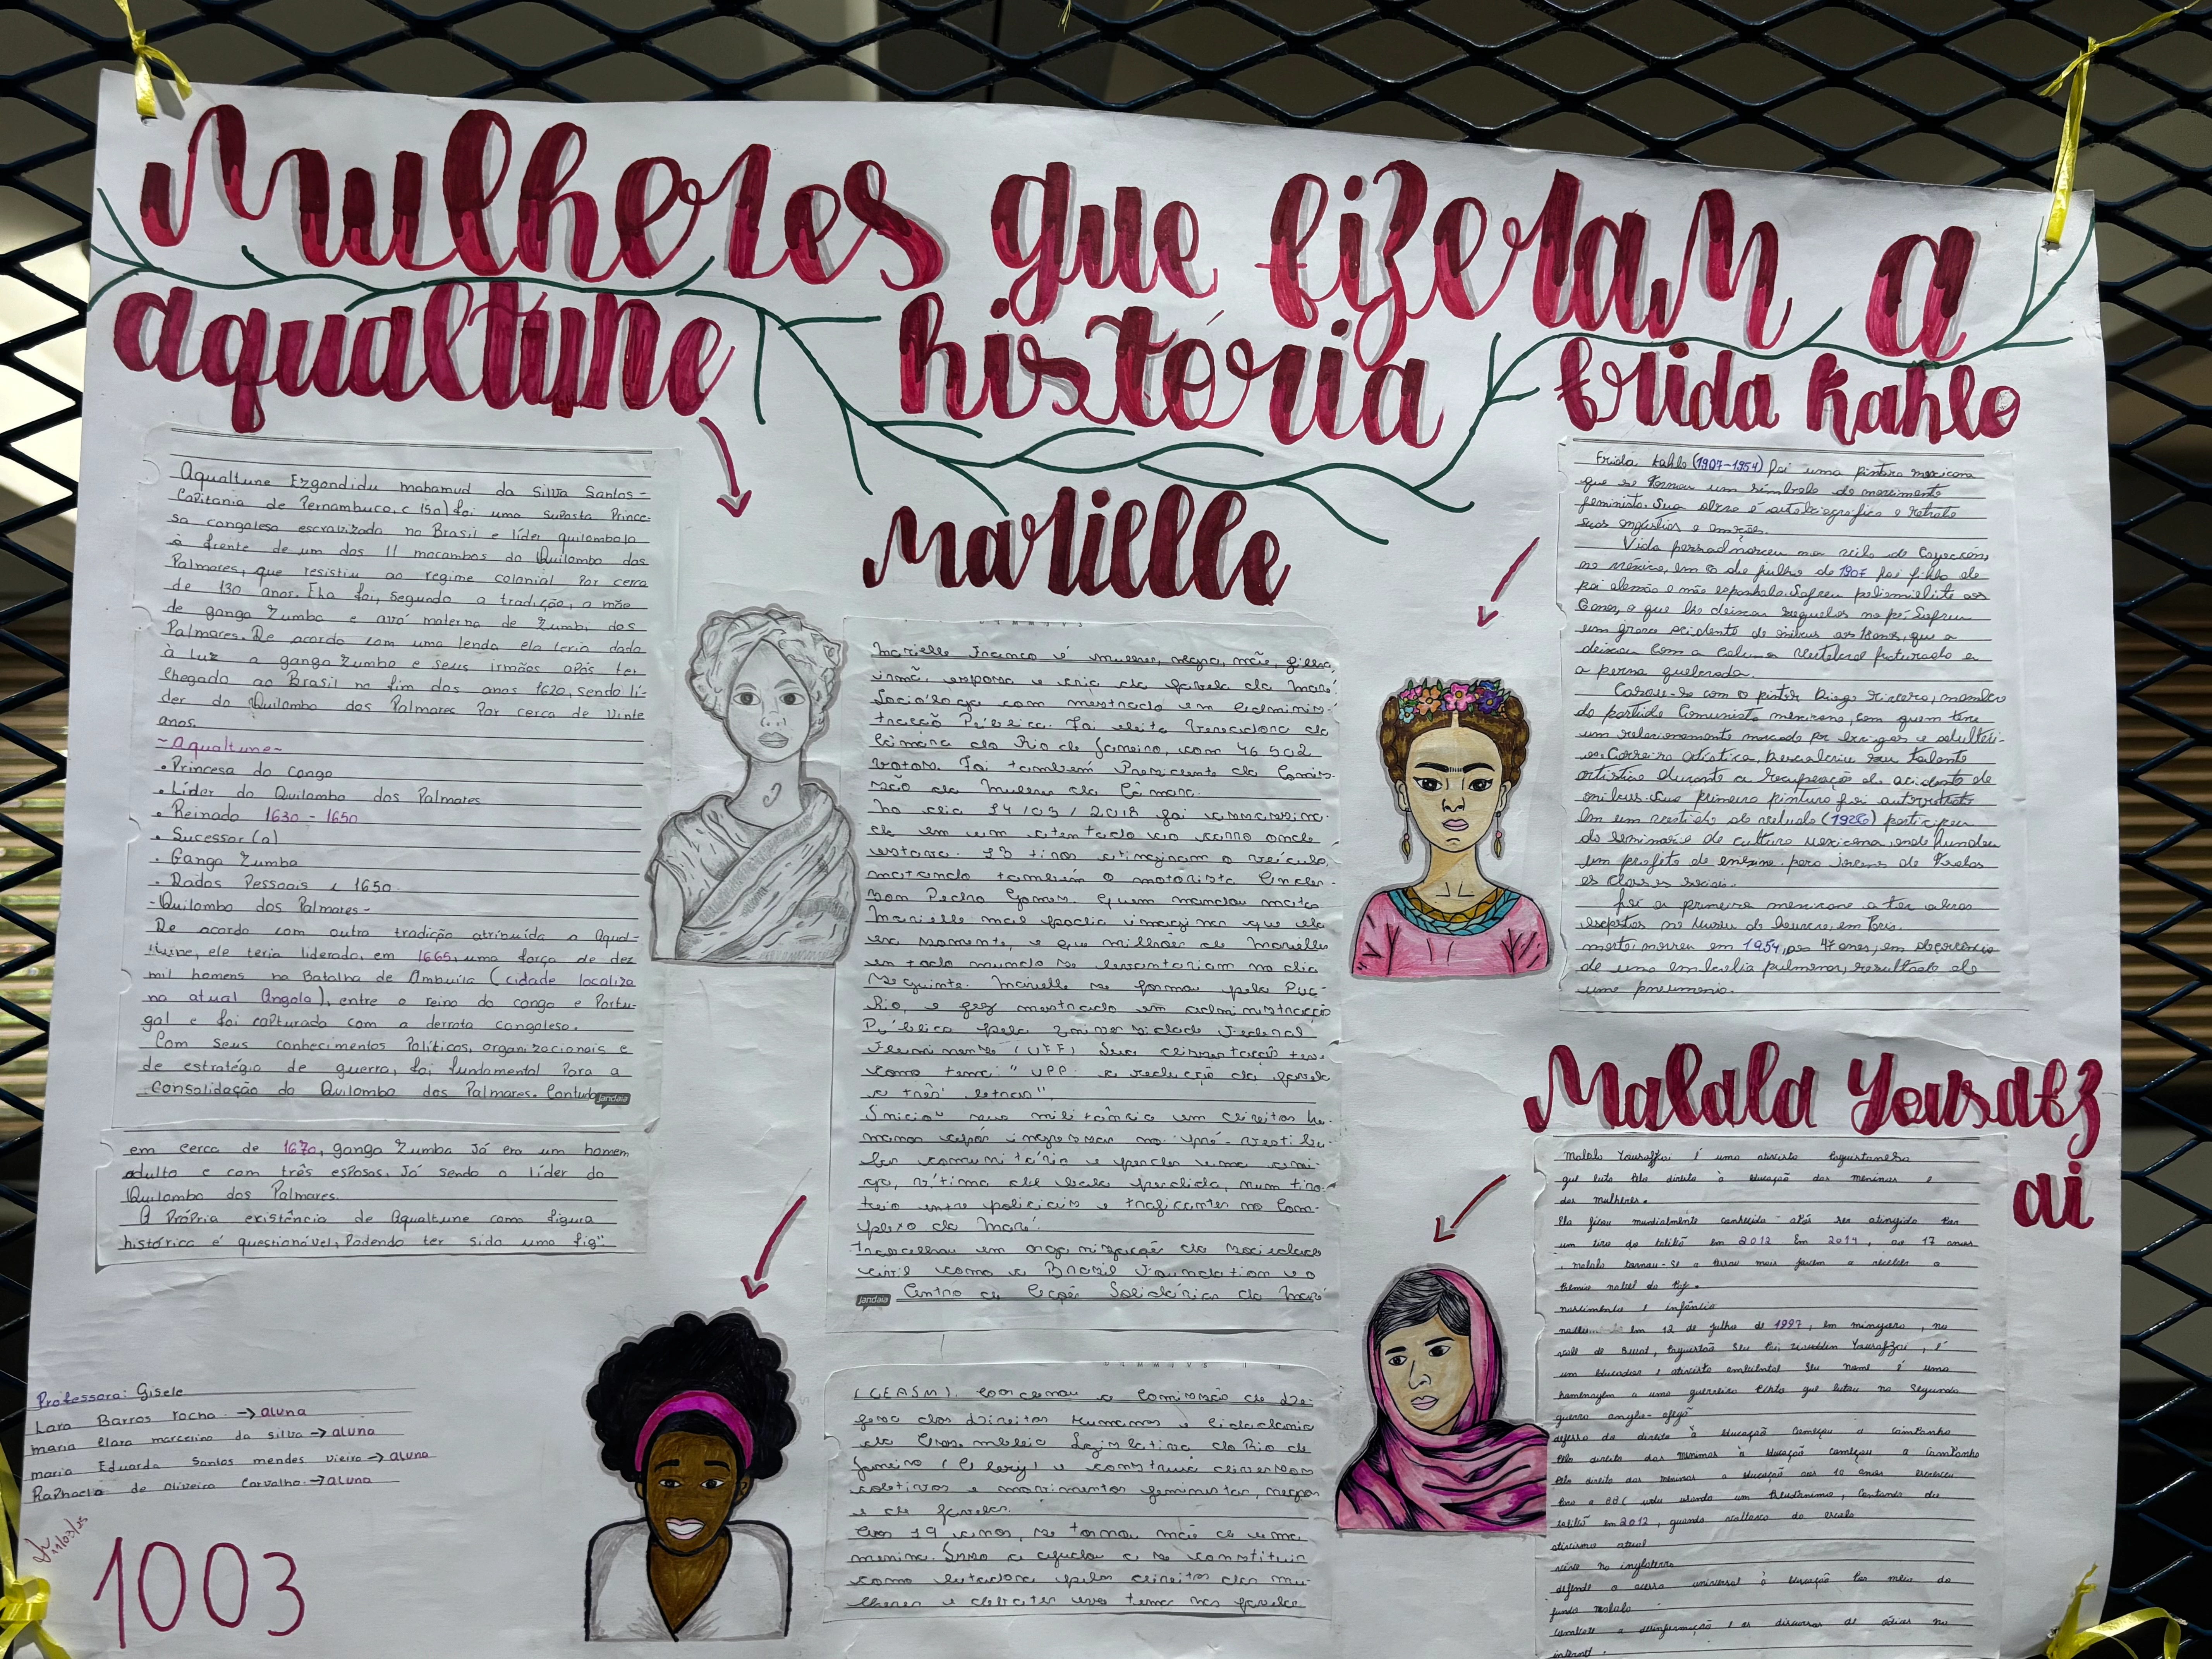 Mulheres que fizeram a
história
aqualtune
Aqualtune Ezgondidu mahamud da Silva Santos-
Capitania de Pernambuco, c 150) foi uma suposta Prince-
sa congolesa escravizada no Brasil e líder quilombola
à frente de um dos 11 macambos do Quilombo dos
Palmares, que resistiu ao regime colonial Por cerca
de 130 anos. Ela foi, segundo a tradição, a mãe
de ganga Zumba e avó materna de Zumbi dos
Palmares. De acordo com uma lenda ela teria dado
à Luz a ganga Zumba e seus irmãos após ter
chegado ao Brasil no fim dos anos 1620, sendo lí-
der do Quilombo dos Palmares Por cerca de vinte
anos.
-Aqualtune-
• Princesa do Congo
• Líder do Quilombo dos Palmares
• Reinado 1630 - 1650
• Sucessor(a)
• Ganga Zumba
• Dados Pessoais 1650
-Quilombo dos Palmares-
De acordo com outra tradição atribuída a Aqual-
tune, ele teria liderado, em 1665, uma força de dez
mil homens na Batalha de Ambuíla (cidade localiza
no atual Angola), entre o reino do congo e Portu-
gal e foi capturada com a derrota congolesa.
Com seus conhecimentos Políticos, organizacionais e
de estratégia de guerra, foi fundamental Para a
Consolidação do Quilombo dos Palmares. Contudo
jandaia
em cerca de 1670, ganga Zumba Já era um homem
adulto e com três esposas. Já sendo o líder do
Quilombo dos Palmares.
A Própria existência de Aqualtune como figura
histórica é questionável, Podendo ter sido uma fig"
Professora: Gisele
Lara Barros rocha → aluna
maria Clara marcelino da silva → aluna
maria Eduarda Santos mendes vieira → aluna
Raphaela de Oliveira Carvalho. → aluna
11/03/25
1003
Marielle
Marielle Franco é mulher, negra, mãe, filha,
irmã, esposa e cria da favela da Maré.
Socióloga com mestrado em Adminis-
tração Pública. Foi eleita Vereadora da
Câmara do Rio de Janeiro, com 46.502
votos. Foi também Presidente da Comis-
são da Mulher da Câmara.
No dia 14/03/2018 foi assassina-
da em um atentado ao carro onde
estava. 13 tiros atingiram o veículo,
matando também o motorista Ander-
son Pedro Gomes. Quem mandou matar
Marielle mal podia imaginar que ela
era semente, e que milhões de Marielles
em todo mundo se levantariam no dia
seguinte. Marielle se formou pela Puc-
Rio, e fez mestrado em administração
Pública pela Universidade Federal
Fluminense (UFF) Sua dissertação teve
como tema: "UPP: a redução da favela
a três letras"
Iniciou sua militância em direitos hu-
manos após ingressar no pré-vestibu-
lar comunitário e perder uma ami-
ga, vítima de bala perdida, num tiro-
teio entre policiais e traficantes no Com-
plexo da Maré.
trabalhou em organização da sociedade
civil como a Brasil Foundation e o
Centro de Ações Solidárias da Maré
jandaia
(CEASM). Coordenou a Comissão de De-
fesa dos Direitos Humanos e Cidadania
da Assembleia Legislativa do Rio de
Janeiro (Alerj) e construiu diversos
coletivos e movimentos feministas, negros
e de favelas.
Aos 19 anos, se tornou mãe de uma
menina. Isso a ajudou a se constituir
como lutadora pelos direitos das mu-
lheres e debater esse tema nas favelas
frida Kahlo
Frida Kahlo (1907-1954) foi uma pintora mexicana
que se tornou um símbolo do movimento
feminista. Sua obra é autobiográfica e retrata
suas angústias e emoções.
Vida pessoal nasceu na vila de Coyoacán,
no México, em 6 de julho de 1907 foi filha de
pai alemão e mãe espanhola. Sofreu poliomielite aos
6 anos, o que lhe deixou sequelas no pé. Sofreu
um grave acidente de ônibus aos 18 anos, que a
deixou com a coluna vertebral fraturada e
a perna quebrada.
Casou-se com o pintor Diego Rivera, membro
do partido Comunista mexicano, com quem teve
um relacionamento marcado por brigas e adultéri-
os. Carreira artística, descobriu seu talento
artístico durante a recuperação do acidente de
ônibus. Sua primeira pintura foi autorretrato
em um vestido de veludo (1926) participou
do seminário de cultura mexicana, onde fundou
um projeto de ensino para jovens de todas
as classes sociais.
foi a primeira mexicana a ter obras
expostas no Museu do Louvre, em Paris.
morte: morreu em 1954, aos 47 anos, em decorrência
de uma embolia pulmonar, resultado de
uma pneumonia.
Malala Yousafz
ai
Malala Yousafzai é uma ativista paquistanesa
que luta pelo direito à educação das meninas e
das mulheres.
Ela ficou mundialmente conhecida após ser atingida por
um tiro do talibã em 2012 Em 2014, aos 17 anos
, malala tornou-se a pessoa mais jovem a receber o
Prêmio nobel da Paz.
nascimento e infância
nasceu em 12 de julho de 1997, em mingora, no
vale de Swat, Paquistão Seu Pai Ziauddin Yousafzai, é
um educador e ativista ambiental Seu nome é uma
homenagem a uma guerreira que lutou na Segunda
guerra anglo-afegã
defesa do direito à educação Começou a Campanha
Pelo direito das meninas à educação começou a Campanha
Pelo direito das meninas a educação aos 10 anos escreveu
Para a BBC usando um Pseudônimo, Contando do
talibã em 2012, quando voltava da escola
ativismo atual
vive na inglaterra
defende o acesso universal à educação Por meio do
fundo malala
combate a desinformação e os discursos de ódios na
internet.